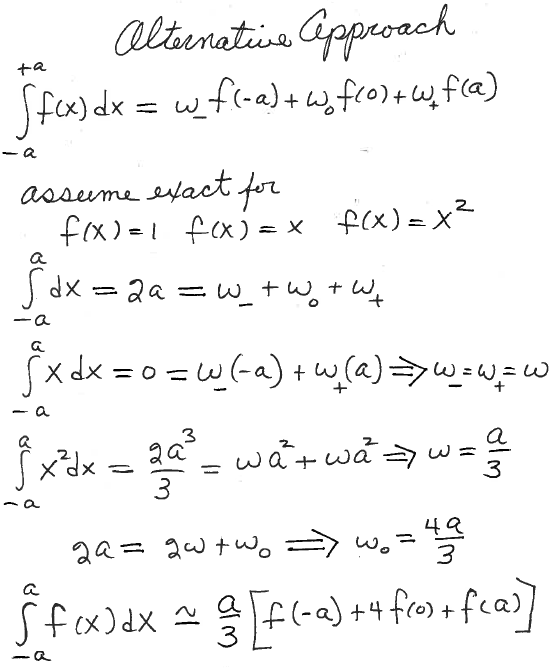 Alternative Approach
∫_{-a}^{+a} f(x) dx = ω_- f(-a) + ω_0 f(0) + ω_+ f(a)
assume exact for
f(x) = 1 f(x) = x f(x) = x²
∫_{-a}^{a} dx = 2a = ω_- + ω_0 + ω_+
∫_{-a}^{a} x dx = 0 = ω_-(-a) + ω_+(a) ⇒ ω_- = ω_+ = ω
∫_{-a}^{a} x² dx = 2a³/3 = ωa² + ωa² ⇒ ω = a/3
2a = 2ω + ω_0 ⇒ ω_0 = 4a/3
∫_{-a}^{a} f(x) dx ≃ a/3 [f(-a) + 4f(0) + f(a)]